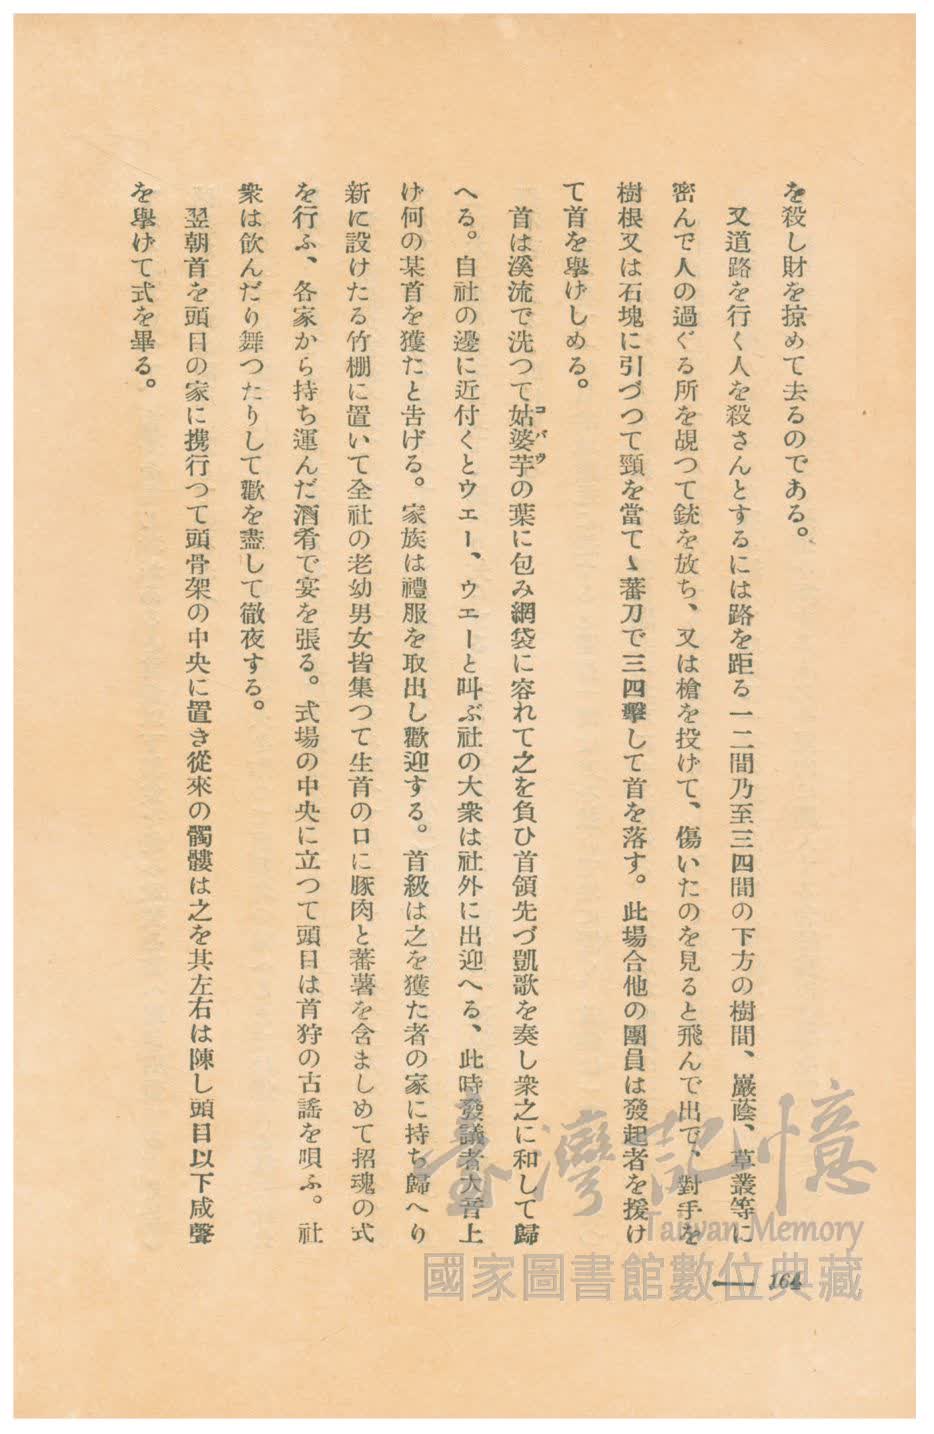 を殺し財を掠めて去るのである。
又道路を行く人を殺さんとするには路を距る一二間乃至三四間の下方の樹間、巖蔭、草叢等に
密んで人の過ぐる所を覘つて銃を放ち、又は槍を投げて、傷いたのを見ると飛んで出で、對手を
樹根又は石塊に引づつて頸を當てゝ蕃刀で三四擊して首を落す。此場合他の團員は發起者を援け
て首を擧げしめる。
首は溪流で洗つて姑婆芋コバウの葉に包み網袋に容れて之を負ひ首領先づ凱歌を奏し衆之に和して歸
へる。自社の邊に近付くとウエー、ウエーと叫ぶ社の大衆は社外に出迎へる、此時發議者大音上
げ何の某首を獲たと告げる。家族は禮服を取出し歡迎する。首級は之を獲た者の家に持ち歸へり
新に設けたる竹棚に置いて全社の老幼男女皆集つて生首の口に豚肉と蕃薯を含ましめて招魂の式
を行ふ、各家から持ち運んだ酒肴で宴を張る。式場の中央に立つて頭目は首狩の古謠を唄ふ。社
衆は飮んだり舞つたりして歡を盡して徹夜する。
翌朝首を頭目の家に携行つて頭骨架の中央に置き從來の髑髏は之を其左右は陳し頭目以下咸聲
を擧げて式を畢る。
164
臺灣記憶
Taiwan Memory
國家圖書館數位典藏